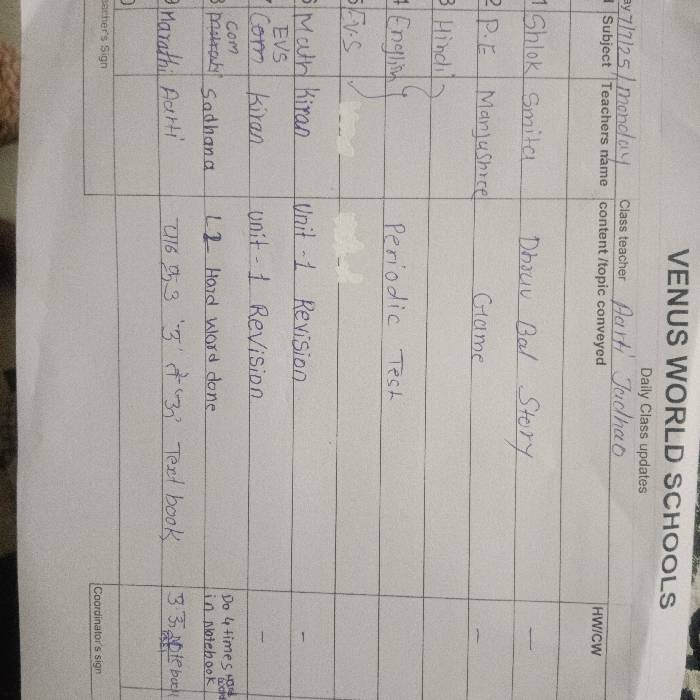 VENUS WORLD SCHOOLS
Daily Class updates
ay 7/7/25 / monday Class teacher Aarti Jadhao
Subject Teachers name content /topic conveyed HW/CW
1 Shlok Smita Dhruv Bal Story —
2 P.E Manjushree Game —
3 Hindi
4 English Periodic Test
5 E.V.S
6 Math Kiran Unit - 1 Revision —
EVS
7 Com Kiran unit - 1 Revision —
8 com Sadhana L2 Hard word done Do 4 times
in Notebook
9 marathi Aarti पाठ क्र. 3 Text book Notebook
10
acher's Sign Coordinator's sign